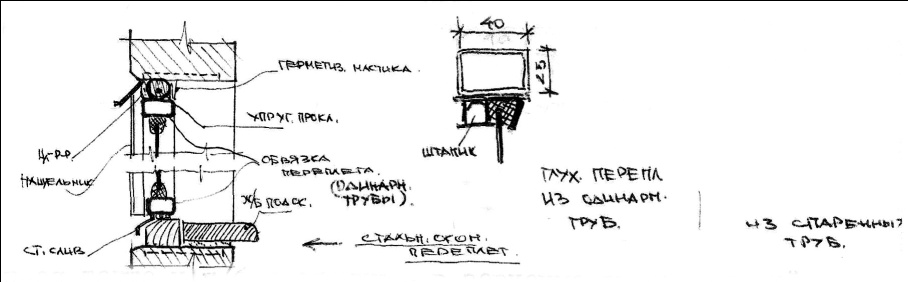 40
25
ГЕРМЕТИЗ. МАСТИКА.
УПРУГ. ПРОКЛ.
Ц-Р-Р
НАЩЕЛЬНИК
ОБВЯЗКА
ПЕРЕПЛЕТА.
(ОДИНАРН.
ТРУБЫ).
Ж/Б ПОДОК.
СТ. СЛИВ
СТАЛЬН. ОКОН.
ПЕРЕПЛЕТ.
ШТАПИК
ГЛУХ. ПЕРЕПЛ
ИЗ ОДИНАРН.
ТРУБ.
ИЗ СПАРЕННЫ
ТРУБ.